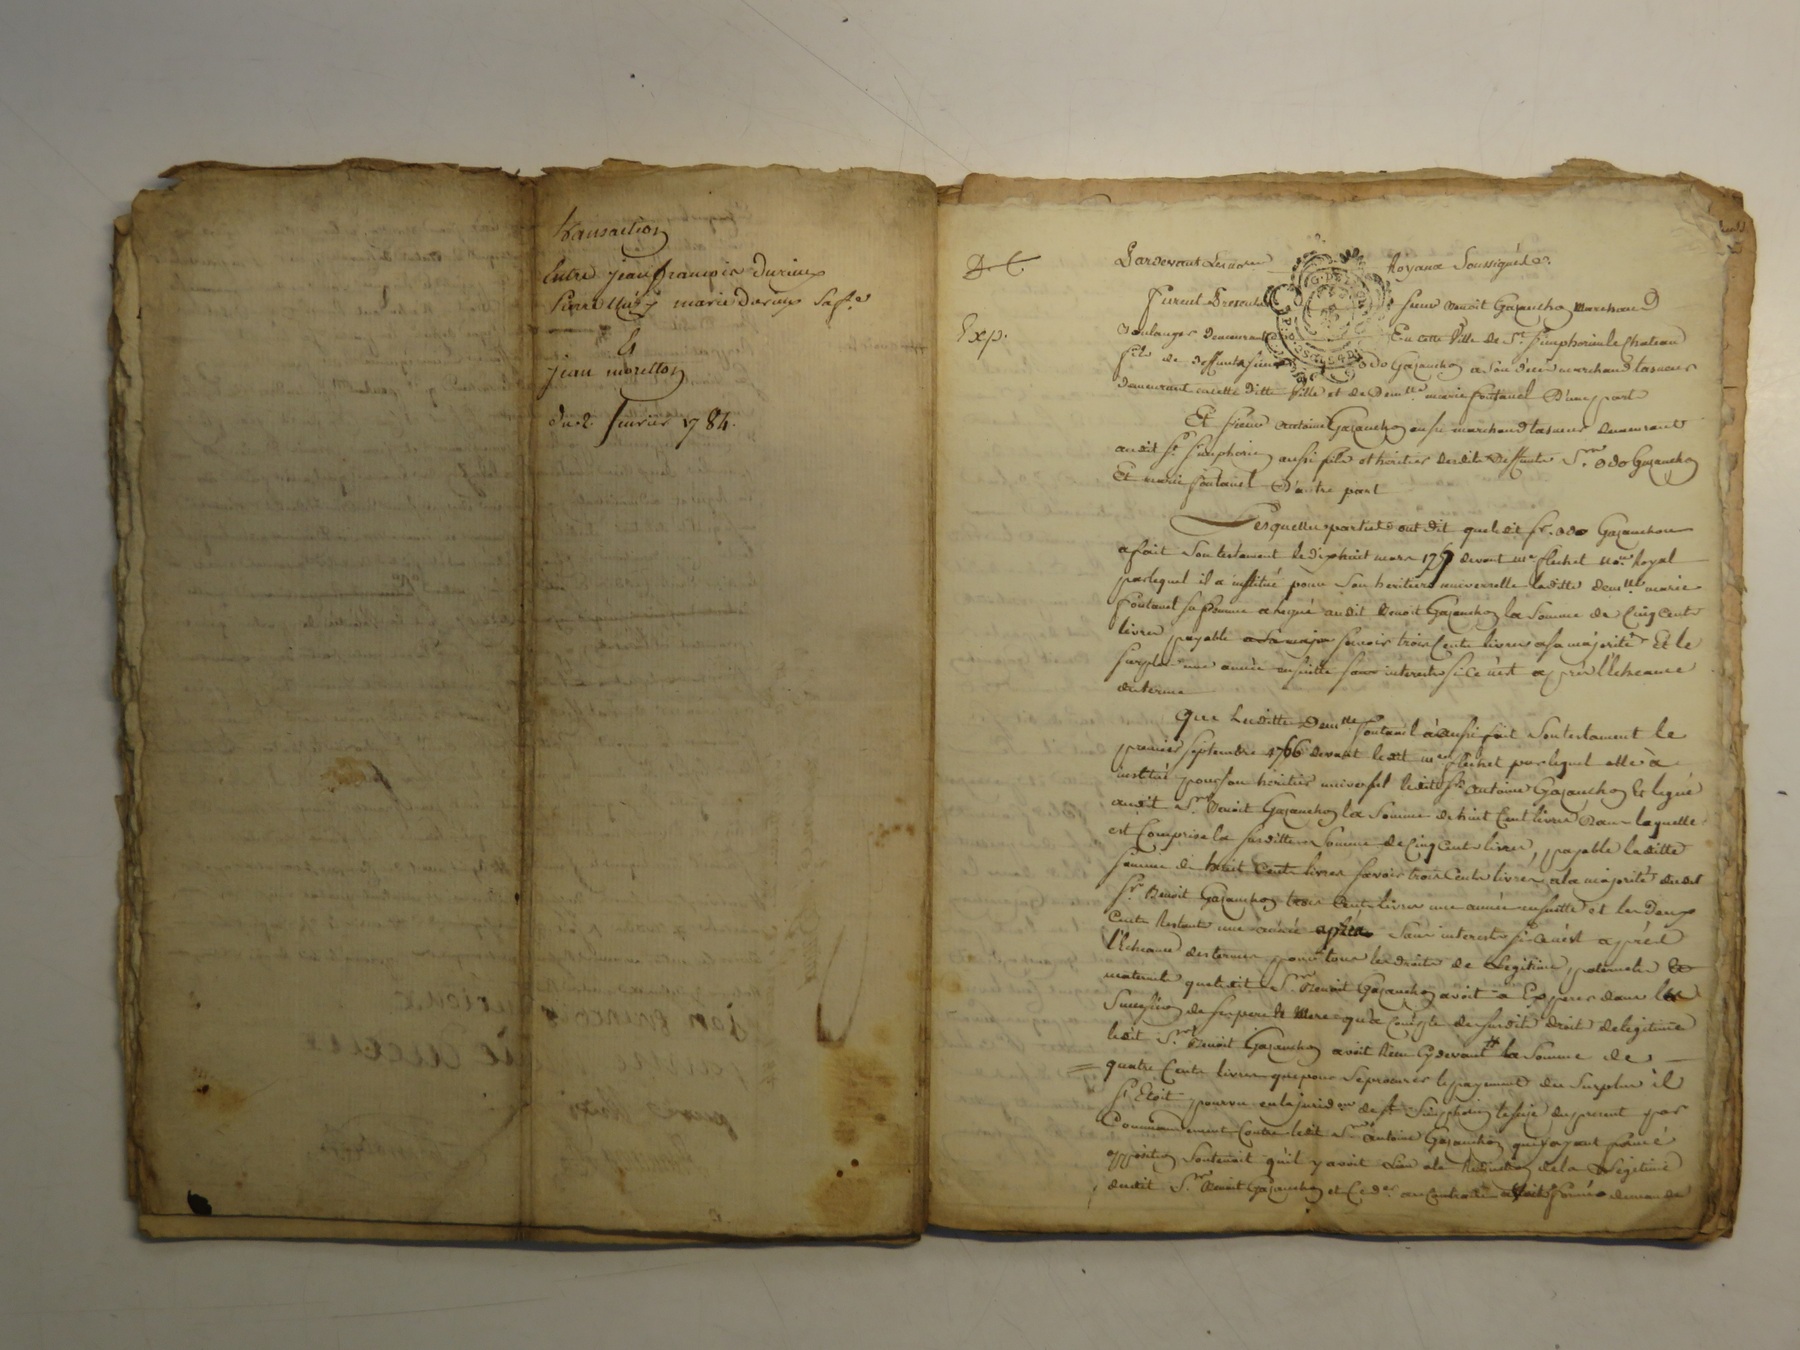 transaction
Entre jean françois durieux
pierre Muzy marie durieux sa fe
Et
jean moretton
du 2 fevrier 1784.
D. C.
Exp.
Pardevant Les No Royaux Soussignés
furent Presents sieur Benoit Gazanchon marchand
Boulanger demeurant En cette Ville de St simphorien le Chateau
fils de deffunts sieur odo Gazanchon a son décès marchand
demeurant en cette ditte Ville et de Demlle marie fontanel D'une part
Et sieur Antoine Gazanchon aussi marchand demeurant
audit St simphorien aussi fils et héritier desdits deffunts Sr odo Gazanchon
Et marie fontanel D'autre part
Lesquelles parties ont dit que ledit sr. odo Gazanchon
a fait Son testament le dixhuit mars devant me flechet nore Royal
par lequel il a institué pour Son heritiere universelle laditte demlle marie
fontanel sa femme a legué audit Benoit Gazanchon la Somme de Cinq Cents
livres payable savoir trois Cents livres a sa majorité Et le
surplus une année ensuitte sans interests si Ce n'est après l'Echeance
du terme
Que Laditte Demlle fontanel a aussi fait Son testament le
premier septembre 1766 devant ledit me flechet par lequel elle à
institué pour son héritier universel ledit Sr Antoine Gazanchon Et legué
audit Sr Benoit Gazanchon la Somme de huit Cent livres Dans laquelle
est Comprise la susditte Somme de Cinq Cents livres, payable laditte
somme de huit Cents livres savoir trois Cents livres a la majorité dudit
Sr Benoit Gazanchon trois Cents livres une année ensuitte et les Deux
Cents Restants une année après Sans interests si Ce n'est après
l'Echeance des termes pour tous les droits de Legitime, paternels &
maternels que ledit Sr Benoit Gazanchon avoit a Esperer dans les
Successions de ses pere & Mere qu'a Compte de susdits droits de legitime
ledit Sr Benoit Gazanchon avoit Reçu Cydevant la Somme de
quatre Cents livres que pour se procurer le payement du Surplus il
s'Etoit pourvu en la juridon de St Simphorien le du present par
Commandement Contre ledit Sr Antoine Gazanchon qui ayant formé
opposition Soutenoit qu'il y avoit Lieu a la Reduction de la Legitime
dudit Sr Benoit Gazanchon et Ceder au Contraire avoit formé demande